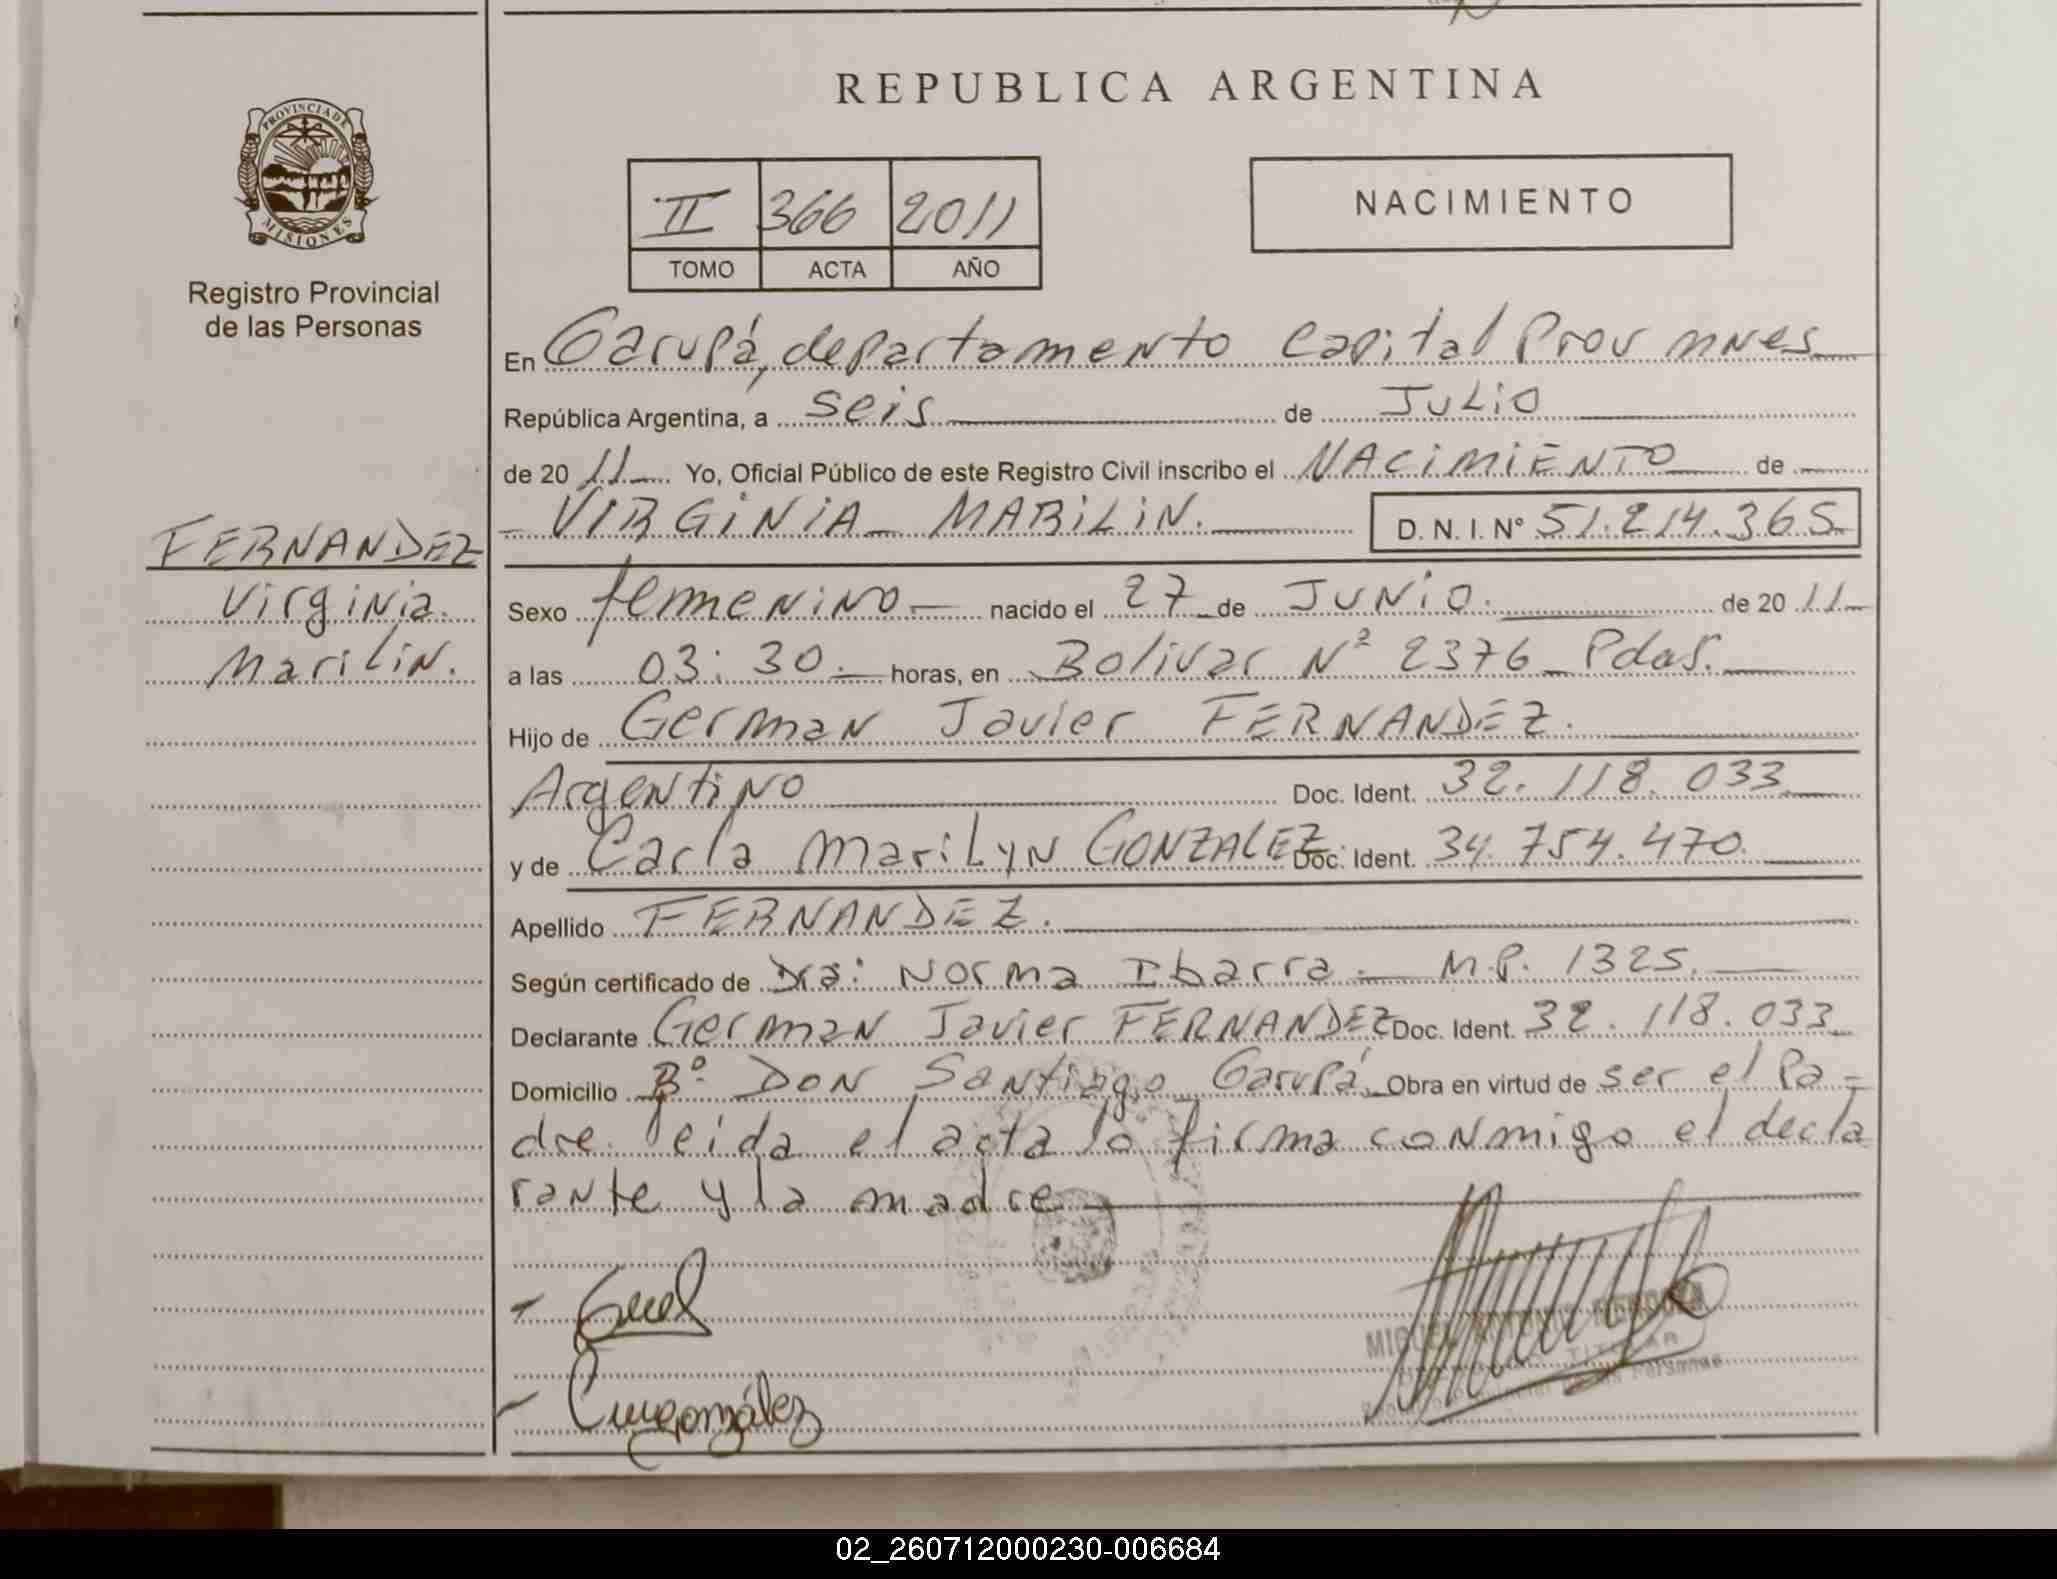 REPUBLICA ARGENTINA
PROVINCIA DE
MISIONES
Registro Provincial
de las Personas
II 366 2011
TOMO ACTA AÑO
NACIMIENTO
En Garupá, departamento Capital Prov mnes
República Argentina, a seis de JULIO
de 20 11 Yo, Oficial Público de este Registro Civil inscribo el NACIMIENTO de
VIRGINIA MARILIN. D. N. I. Nº 51.214.365
FERNANDEZ
Virginia
Marilin.
Sexo femenino nacido el 27 de JUNIO. de 20 11
a las 03:30. horas, en Bolivar Nº 2376 Pdas.
Hijo de German Javier FERNANDEZ.
Argentino Doc. Ident. 32.118.033
y de Carla MariLyn GONZALEZ Doc. Ident. 34.754.470.
Apellido FERNANDEZ.
Según certificado de Dra: Norma Ibarra M.P. 1325.
Declarante German Javier FERNANDEZ Doc. Ident. 32.118.033
Domicilio Bº DON Santiago Garupá. Obra en virtud de ser el Pa-
dre. leida el acta lo firma conmigo el decla
rante y la madre
Cmgonzález
MIGUEL
TITULAR
02_260712000230-006684